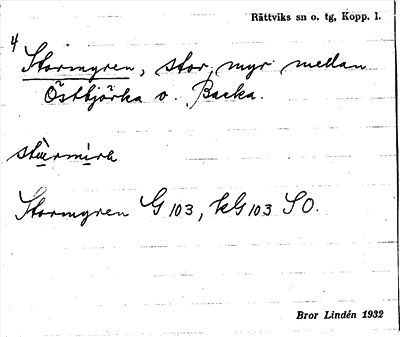 Rättviks sn o. tg, Kopp. l.
4
Stormyren, stor myr mellan
Östbjörka o. Backa.
Stormyren G 103, kG 103 SO.
Bror Lindén 1932